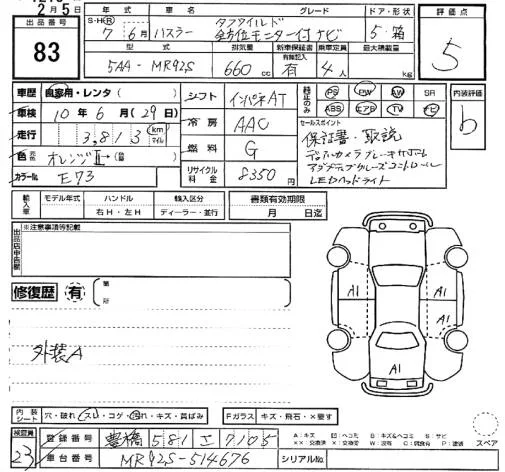 2月5日
出品番号
83
S・H・R 年式 車名 グレード ドア・形状 評価点
7年 6月 ハスラー タフワイルド
全方位モニター付ナビ 5・箱 5
型式 排気量 新車保証書 乗車定員 最大積載量
有無記入
5AA-MR92S 660 cc 有 4人 kg
車歴 自家用・レンタ( )
車検 10年 6月(29日)
走行 3,813 km マイル
色 元色 オレンジII→( 替 )
カラーNo E73
シフト インパネAT
冷房 AAC
燃料 G
リサイクル料金 8350円
PS PW AW SR
ABS エアB TV ナビ
内装評価
b
セールスポイント
保証書・取説
デュアルカメラブレーキサポート
アダプティブクルーズコントロール
LEDヘッドライト
輸入車 モデル年式 ハンドル 輸入区分 書類有効期限
右H・左H ディーラー・並行 月 日迄
出品店申告欄
※注意事項等記載
修復歴 有 箇所
外装A
A1 A1
A1
内装シート 穴・破れ スレ・コゲ・汚れ・キズ・黄ばみ Fガラス キズ・飛石・×要す
検査員 23
登録番号 豊橋 581 エ 7105
車台番号 MR92S-514676 シリアルNo.
A:キズ 凹:ヘコミ B:キズ&ヘコミ S:サビ
××:交換済 ×:交換要 W:波有 C:腐食有 P:塗装 スペア